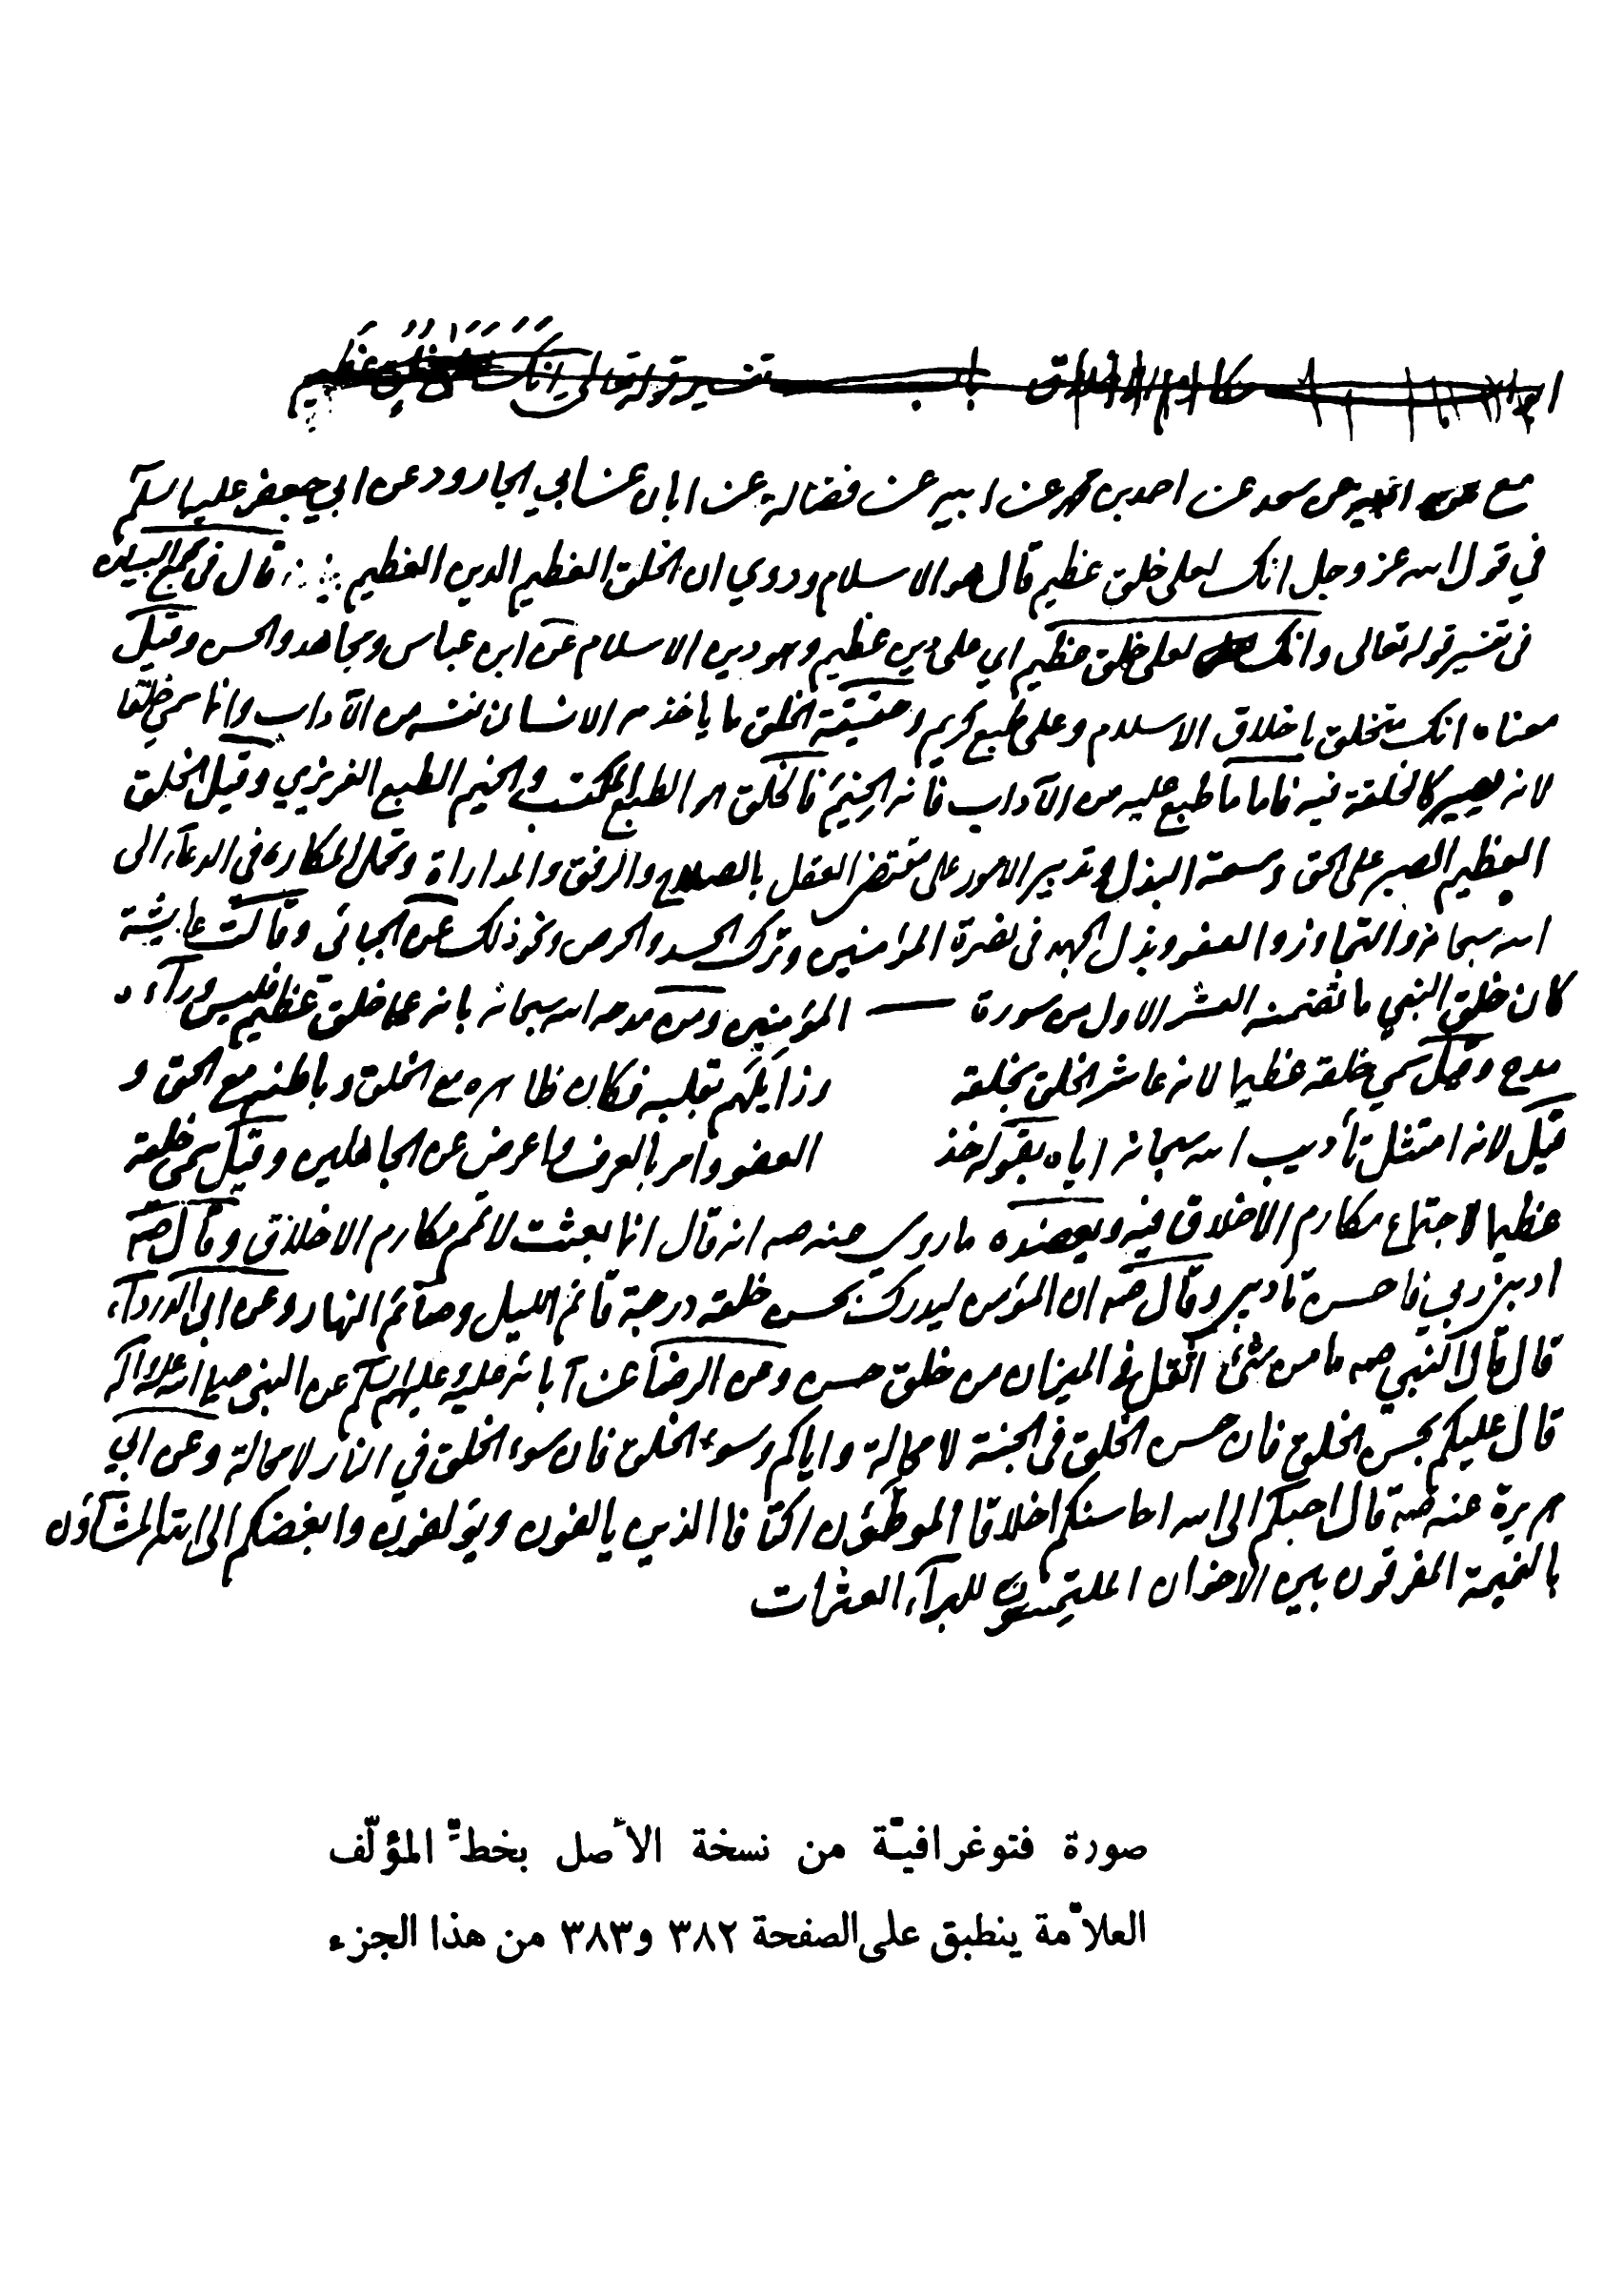 مكارم الاخلاق باب تفسير قوله تعالى انك لعلى خلق عظيم
مع عن سعد عن احمد بن محمد عن ابيه عن فضالة عن ابان عن ابي الجارود عن ابي جعفر عليه السلم
في قول الله عز وجل انك لعلى خلق عظيم قال هو الاسلام وروي ان الخلق العظيم الدين العظيم قال في مجمع البيان
في تفسير قوله تعالى وانك لعلى خلق عظيم اي على دين عظيم وهو دين الاسلام عن ابن عباس ومجاهد والحسن وقيل
معناه انك متخلق باخلاق الاسلام وعلى طبع كريم وحقيقة الخلق ما ياخذ به الانسان نفسه من الآداب وانما سمي خلقا
لانه يصير كالخلقة فيه فاما ما طبع عليه من الآداب فانه الخِيَم فالخلق هو الطبع المكتسب والخيم الطبع الغريزي وقيل الخلق
العظيم الصبر على الحق وسعة البذل وتدبير الامور على مقتضى العقل بالصلاح والرفق والمداراة وتحمل المكاره في الدعآء الى
الله سبحانه والتجاوز والعفو وبذل الجهد في نصرة المؤمنين وترك الحسد والحرص ونحو ذلك عن الجبائي وقالت عايشة
كان خلق النبي ما تضمنه العشر الاول من سورة المؤمنين ومن مدحه الله سبحانه بانه على خلق عظيم فليس ورآءه
مدح وقيل سمي خلقه عظيما لانه عاشر الخلق بخلقه وزايَلَهم بقلبه فكان ظاهره مع الخلق وباطنه مع الحق و
قيل لانه امتثل تأديب الله سبحانه اياه بقوله خذ العفو وامر بالعرف واعرض عن الجاهلين وقيل سمى خلقه
عظيما لاجتماع مكارم الاخلاق فيه ويعضده ما روي عنه صه انه قال انما بعثت لاتمم مكارم الاخلاق وقال صه
ادبني ربي فاحسن تاديبي وقال صه ان المؤمن ليدرك بحسن خلقه درجة قائم الليل وصآئم النهار وعن ابى الدردآء
قال قال النبي صه ما من شئ اثقل في الميزان من خلق حسن وعن الرضا عن آبائه عليه وعليهم السلم عن النبي صلى الله عليه وآله
قال عليكم بحسن الخلق فان حسن الخلق فى الجنة لا محالة واياكم وسوء الخلق فان سوء الخلق في النار لا محالة وعن ابي
هريرة عنه صه قال احبكم الى الله احاسنكم اخلاقا الموطّؤن اكنافا الذين يالفون ويؤلفون وابغضكم الى الله المشآؤن
بالنميمة المفرقون بين الاخوان الملتمسون للبرآء العثرات
صورة فتوغرافيّة من نسخة الأصل بخطّ المؤلّف
العلاّمة ينطبق على الصفحة ٣٨٢ و٣٨٣ من هذا الجزء